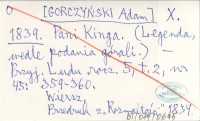 [GORCZYŃSKI Adam] X.
1839. Pani Kinga. (Legenda,
wedle podania górali.) —
Przyj. Ludu rocz. 5, t. 2, nr
45: 359-360.
Wiersz.
Przedruk z „Rozmaitości" 1834.